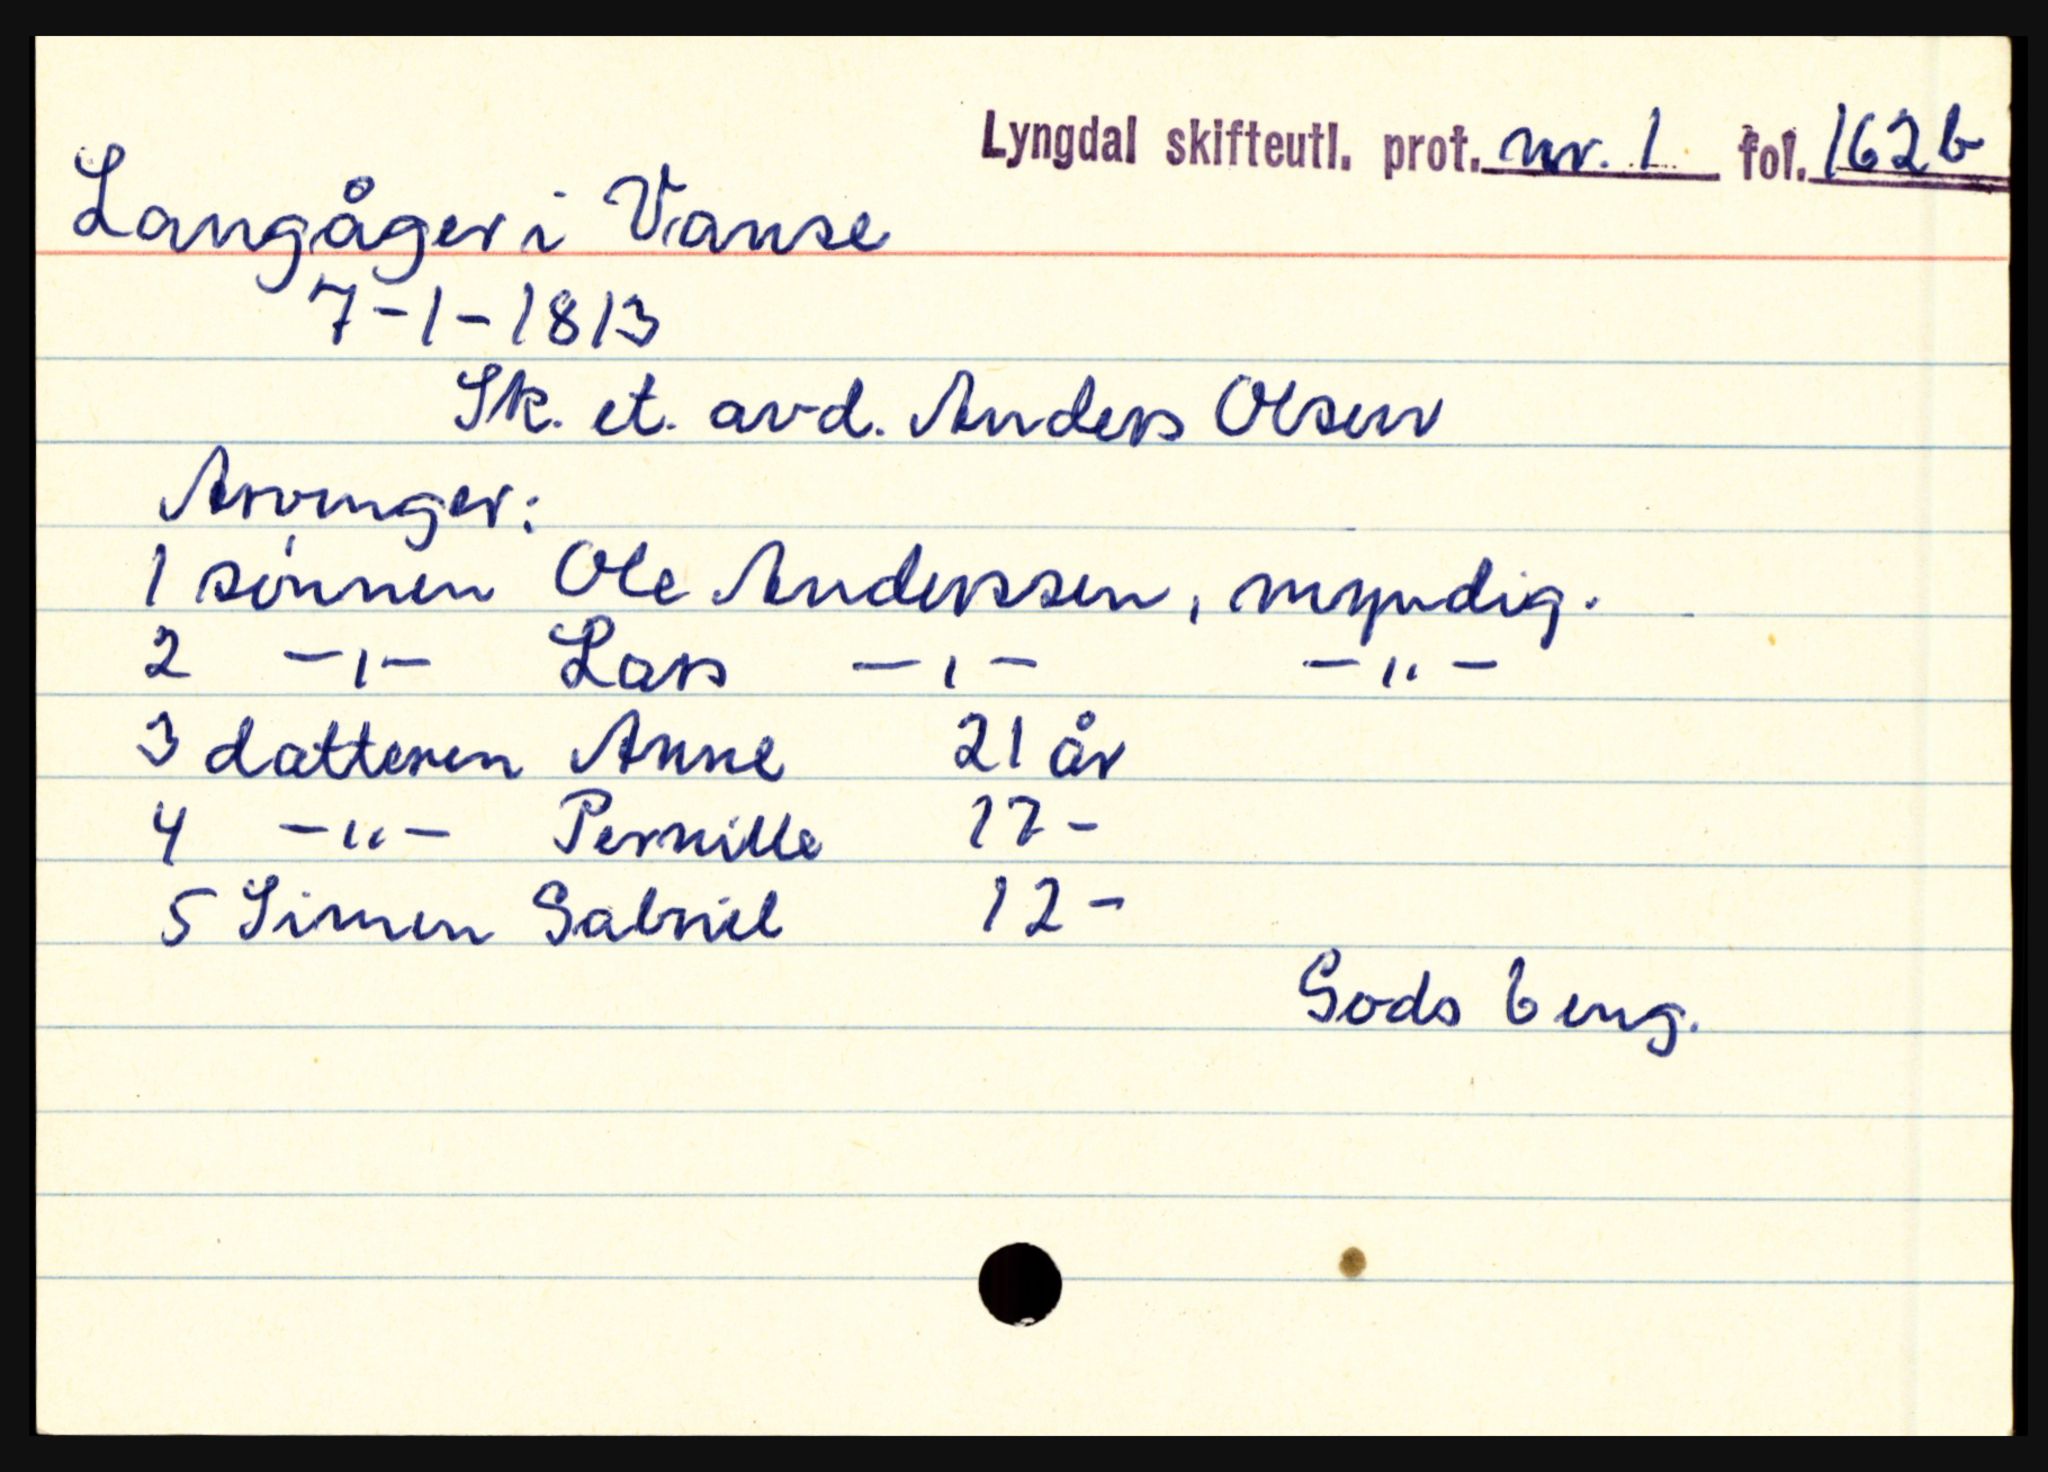 Lyngdal skifteutl. prot. nr. 1 fol. 162b
Langåger i Vanse
7-1-1813
Sk. et. avd. Anders Olsen
Arvinger:
1 sønnen Ole Anderssen, myndig.
2 -"- Lars -"- -"-
3 datteren Anne 21 år
4 -"- Pernille 17 -
5 Simen Gabriel 12 -
Gods beng.